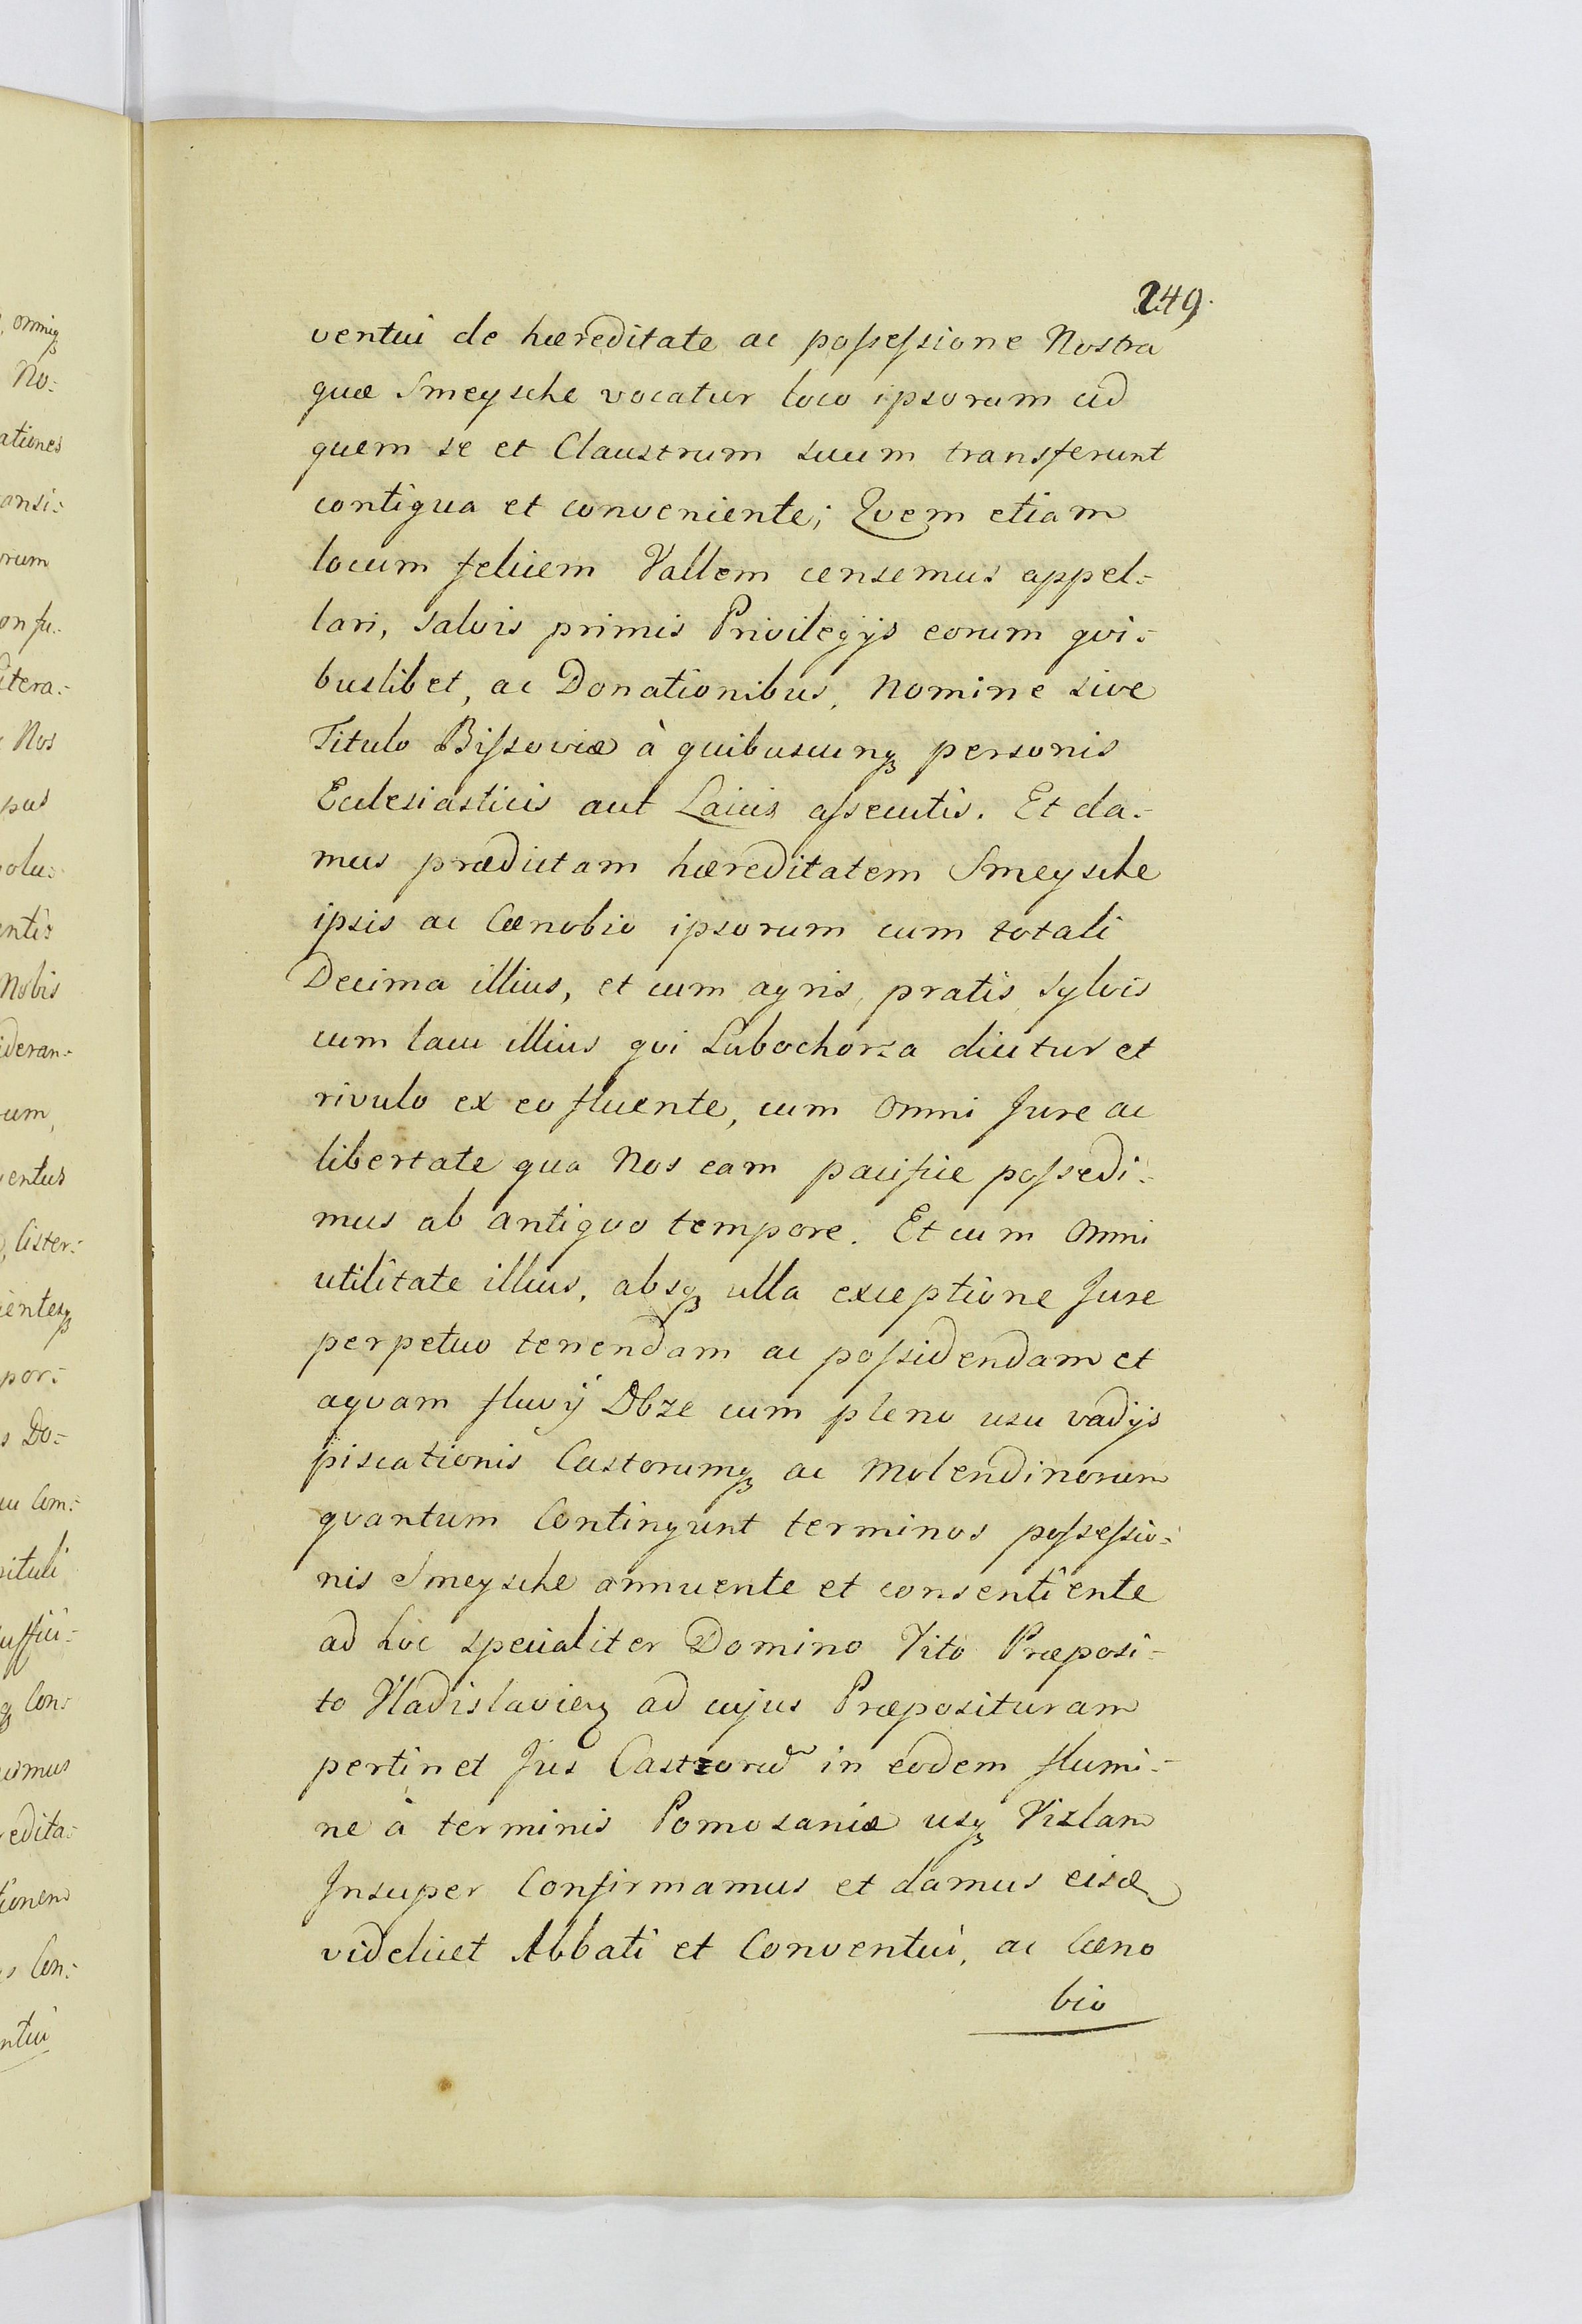 249.
ventui de hæreditate ac possessione Nostra
quæ Smeysche vocatur loco ipsorum ad
quem se et Claustrum suum transferunt
contigua et conveniente; Qvem etiam
locum felicem Vallem censemus appel:
lari, salvis primis Privilegijs eorum qvi:
buslibet, ac Donationibus, Nomine sive
Titulo Bissoviæ à quibuscunqꝫ personis
Ecclesiasticis aut Laicis assecutis. Et da:
mus prædictam hæreditatem Smeysche
ipsis ac Cœnobio ipsorum cum totali
Decima illius, et cum agris, pratis, sylvis
cum lacu illius qvi Lubochorza dicitur et
rivulo ex eo fluente, cum omni Jure ac
libertate qua Nos eam pacifice possedi:
mus ab antiqvo tempore. Et cum omni
utilitate illius, absqꝫ ulla exceptione Jure
perpetuo tenendam ac possidendam et
aqvam fluvij Dbze cum pleno usu vadijs
piscationis Castorumqꝫ ac Molendinorum
qvantum Contingunt terminos possessio:
nis Smeysche annuente et consentiente
ad hoc specialiter Domino Vito Præposi:
to Vladislavien ad cujus Præposituram
pertinet Jus Castrorũ in eodem flumi:
ne à terminis Pomosaniæ usqꝫ Vislam
Insuper Confirmamus et damus eisd
videlicet Abbati et Conventui, ac Cœno
bio
omniqꝫ
No:
ationes
ansi:
orum
onfu:
itera:
Nos
pus
olu:
entis
Nobis
ideran:
um,
ventus
lister:
ientesqꝫ
por:
s Do:
Com:
pituli
uffici:
qꝫ Con:
cimus
redita:
tionem
s Con:
ntui